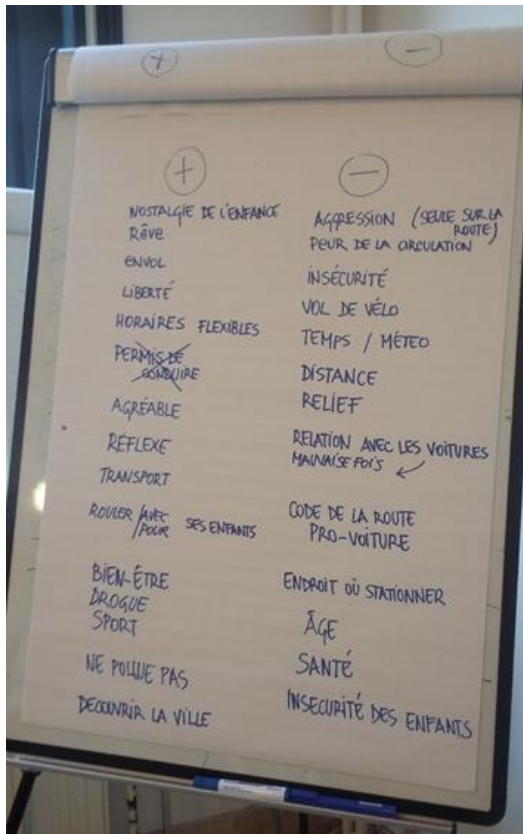 + −
+ −
NOSTALGIE DE L'ENFANCE
Rêve
ENVOL
LIBERTÉ
HORAIRES FLEXIBLES
PERMIS DE
CONDUIRE
AGRÉABLE
RÉFLEXE
TRANSPORT
ROULER / AVEC
/ POUR SES ENFANTS
BIEN-ÊTRE
DROGUE
SPORT
NE POLLUE PAS
DECOUVRIR LA VILLE
AGGRESSION (SEULE SUR LA
ROUTE)
PEUR DE LA CIRCULATION
INSÉCURITÉ
VOL DE VÉLO
TEMPS / MÉTEO
DISTANCE
RELIEF
RELATION AVEC LES VOITURES
MAUVAISE FOIS
CODE DE LA ROUTE
PRO-VOITURE
ENDROIT OÙ STATIONNER
ÂGE
SANTÉ
INSECURITÉ DES ENFANTS